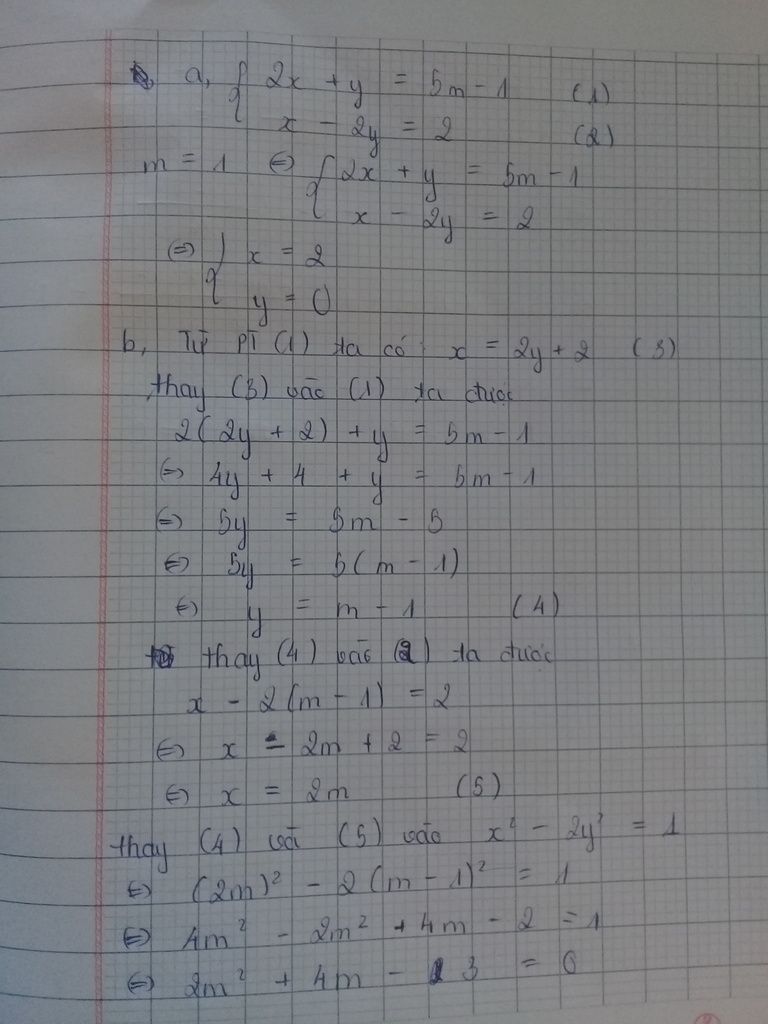 a, { 2x + y = 5m - 1 (1)
x - 2y = 2 (2)
m = 1 ⇔ { 2x + y = 5m - 1
x - 2y = 2
⇔ { x = 2
y = 0
b, Từ PT (1) ta có: x = 2y + 2 (3)
thay (3) vào (1) ta được
2(2y + 2) + y = 5m - 1
⇔ 4y + 4 + y = 5m - 1
⇔ 5y = 5m - 5
⇔ 5y = 5(m - 1)
⇔ y = m - 1 (4)
thay (4) vào (2) ta được
x - 2(m - 1) = 2
⇔ x - 2m + 2 = 2
⇔ x = 2m (5)
thay (4) và (5) vào x² - 2y² = 1
⇔ (2m)² - 2(m - 1)² = 1
⇔ 4m² - 2m² + 4m - 2 = 1
⇔ 2m² + 4m - 3 = 0